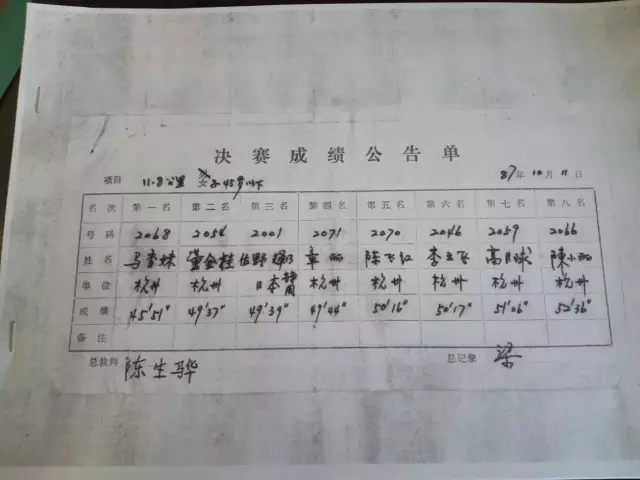 决赛成绩公告单
项目 11.8公里 女子45岁以下 87年10月11日
名次 第一名 第二名 第三名 第四名 第五名 第六名 第七名 第八名
号码 2068 2054 2001 2071 2070 2046 2059 2066
姓名 马香妹 董金桂 佐野 章丽 陈飞红 李飞 高 陈小丽
单位 杭州 杭州 日本静岡 杭州 杭州 杭州 杭州 杭州
成绩 45'51" 49'37" 49'39" 49'44" 50'16" 50'17" 51'06" 52'36"
备注
总裁判 陈生骅 总记录 梁